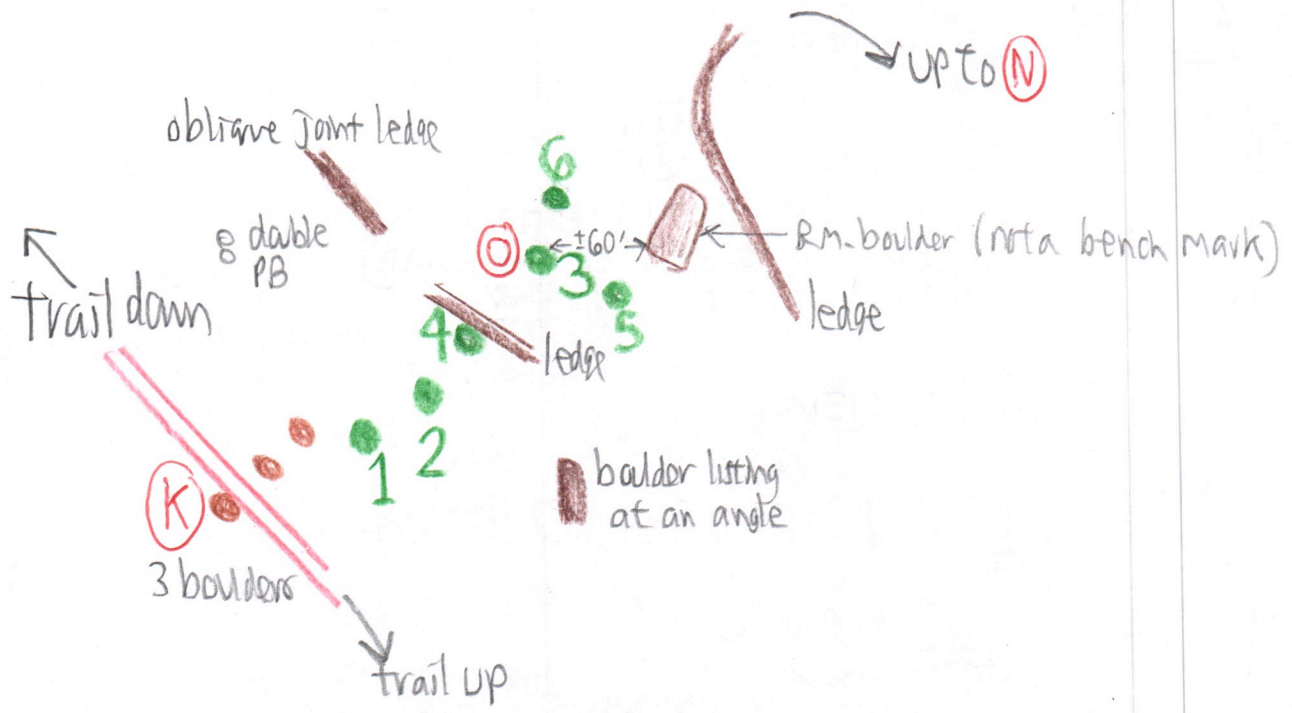 up to N
oblique joint ledge
6
8 double
PB
O
±60'
3
R.M. boulder (not a bench mark)
trail down
4
5
ledge
ledge
1
2
K
boulder listing
at an angle
3 boulders
trail up